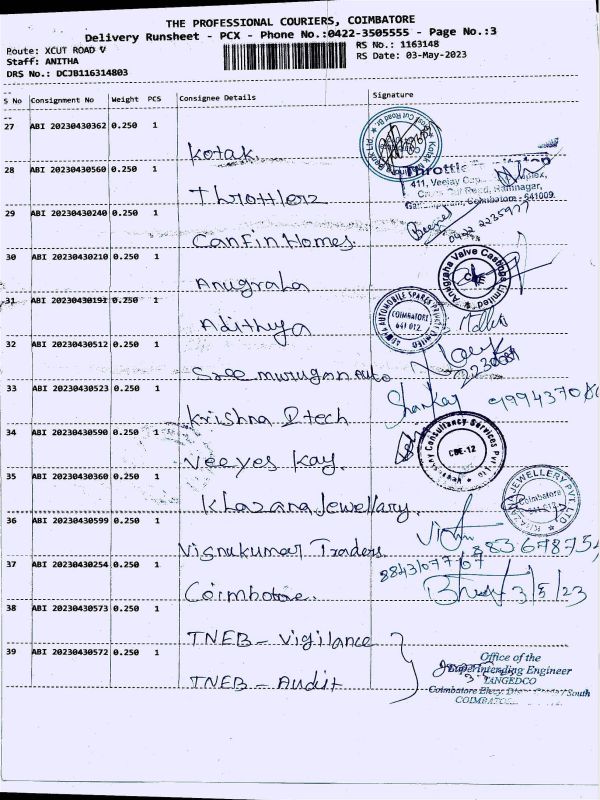 THE PROFESSIONAL COURIERS, COIMBATORE
Delivery Runsheet - PCX - Phone No.:0422-3505555 - Page No.:3
Route: XCUT ROAD V
RS No.: 1163148
Staff: ANITHA
RS Date: 03-May-2023
DRS No.: DCJB116314803
S No Consignment No Weight PCS Consignee Details Signature
27 ABI 20230430362 0.250 1
Kotak
28 ABI 20230430560 0.250 1
Throttlerz
411, Veejay
Ramnagar,
Coimbatore - 641009.
29 ABI 20230430240 0.250 1
0422 2235977
CanFin Homes.
30 ABI 20230430210 0.250 1
Anugraha
Anugraha Valve Castings Limited
31 ABI 20230430191 0.250 1
Adithya
AUTOMOBILE SPARES PRIVATE LIMITED
COIMBATORE
641 012.
32 ABI 20230430512 0.250 1
Sree murugan auto
33 ABI 20230430523 0.250 1
Krishna Dtech
Shankar
34 ABI 20230430590 0.250 1
Veeyes Kay
Consultancy Services Pvt Ltd
CBE-12
35 ABI 20230430360 0.250 1
Khazana Jewellary.
KHAZANA JEWELLERY PVT LTD
Coimbatore
36 ABI 20230430599 0.250 1
Vignukumar Traders
37 ABI 20230430254 0.250 1
8843107767
Coimbatore.
3/5/23
38 ABI 20230430573 0.250 1
TNEB - Vigilance
39 ABI 20230430572 0.250 1
TNEB - Audit
Office of the
Superintending Engineer
TANGEDCO
Coimbatore Elecy. South